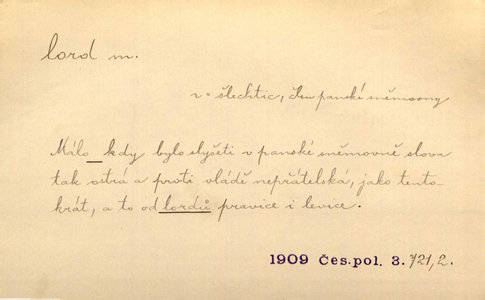 lord m.
v = šlechtic, člen panské sněmovny
Málo kdy bylo slyšeti v panské sněmovně slova
tak ostrá a proti vládě nepřátelská, jako tento-
krát, a to od lordů pravice i levice.
1909 Čes.pol. 3. 721, 2.